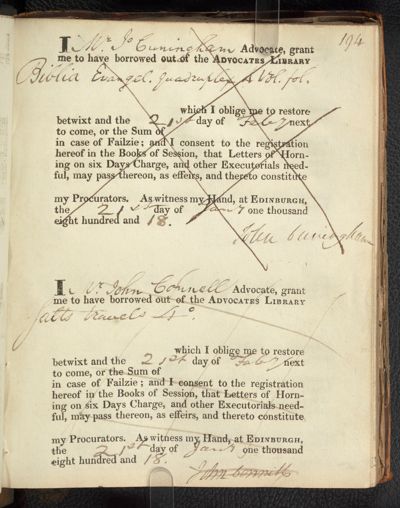 194
I, Mr Jo Cuningham Advocate, grant
me to have borrowed out of the ADVOCATES LIBRARY
Biblia Evangel. quadruplex 4 Vol. fol.
which I oblige me to restore
betwixt and the 21st day of Feb^y next
to come, or the Sum of
in case of Failzie; and I consent to the registration
hereof in the Books of Session, that Letters of Horn-
ing on six Days Charge, and other Executorials need-
ful, may pass thereon, as effeirs, and thereto constitute
my Procurators. As witness my Hand, at EDINBURGH,
the 21st day of Jan^y one thousand
eight hundred and 18.
John Cuningham
I, Mr John Connell Advocate, grant
me to have borrowed out of the ADVOCATES LIBRARY
travels 4^o.
which I oblige me to restore
betwixt and the 21st day of Feb^y next
to come, or the Sum of
in case of Failzie; and I consent to the registration
hereof in the Books of Session, that Letters of Horn-
ing on six Days Charge, and other Executorials need-
ful, may pass thereon, as effeirs, and thereto constitute
my Procurators. As witness my Hand, at EDINBURGH,
the 21st day of Jan^y one thousand
eight hundred and 18.
John Connell